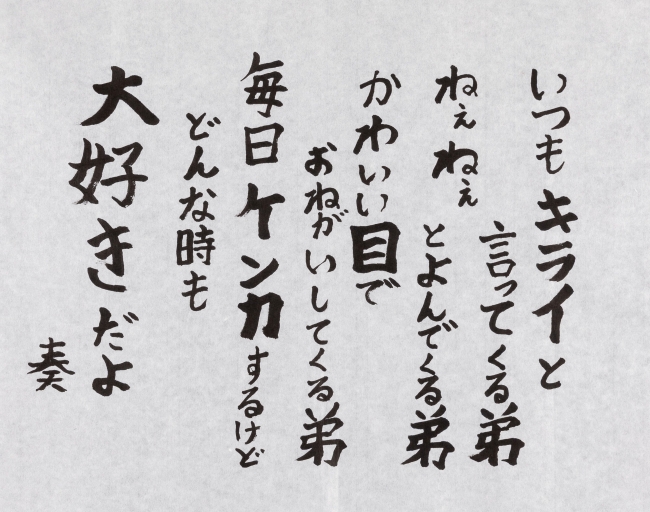 いつもキライと
言ってくる弟
ねぇねぇ
とよんでくる弟
かわいい目で
おねがいしてくる弟
毎日ケンカするけど
どんな時も
大好きだよ
奏